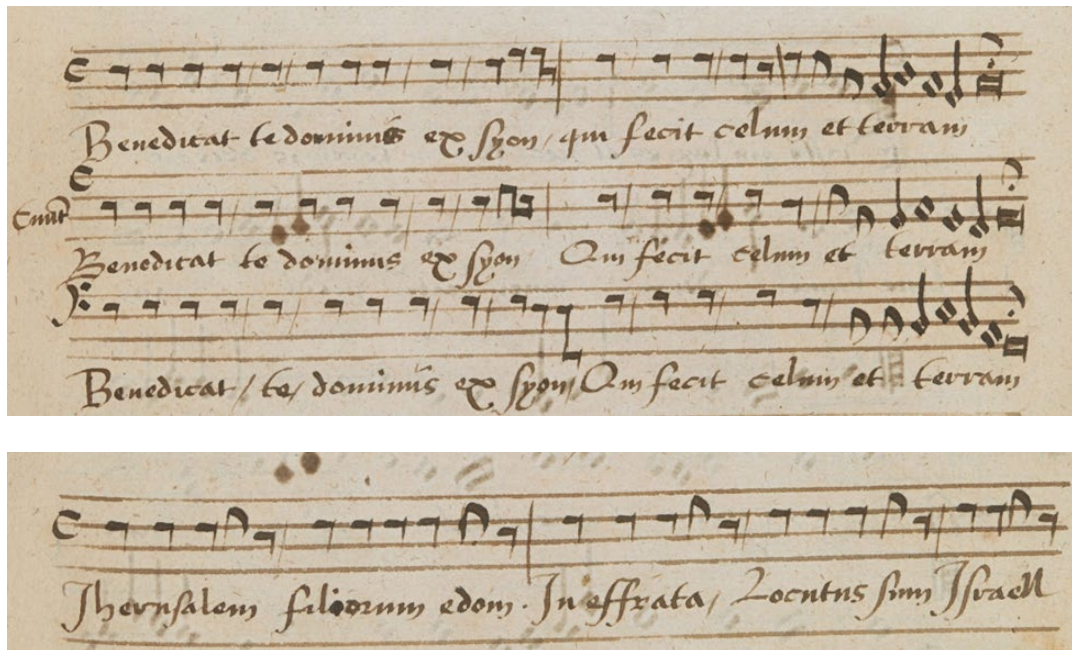 Benedicat te dominus ex syon / qui fecit celum et terram
Benedicat te dominus ex syon Qui fecit celum et terram
Benedicat / te / dominus ex syon / Qui fecit celum et terram
Jherusalem filiorum edom . In effrata / Locutus sum Israell